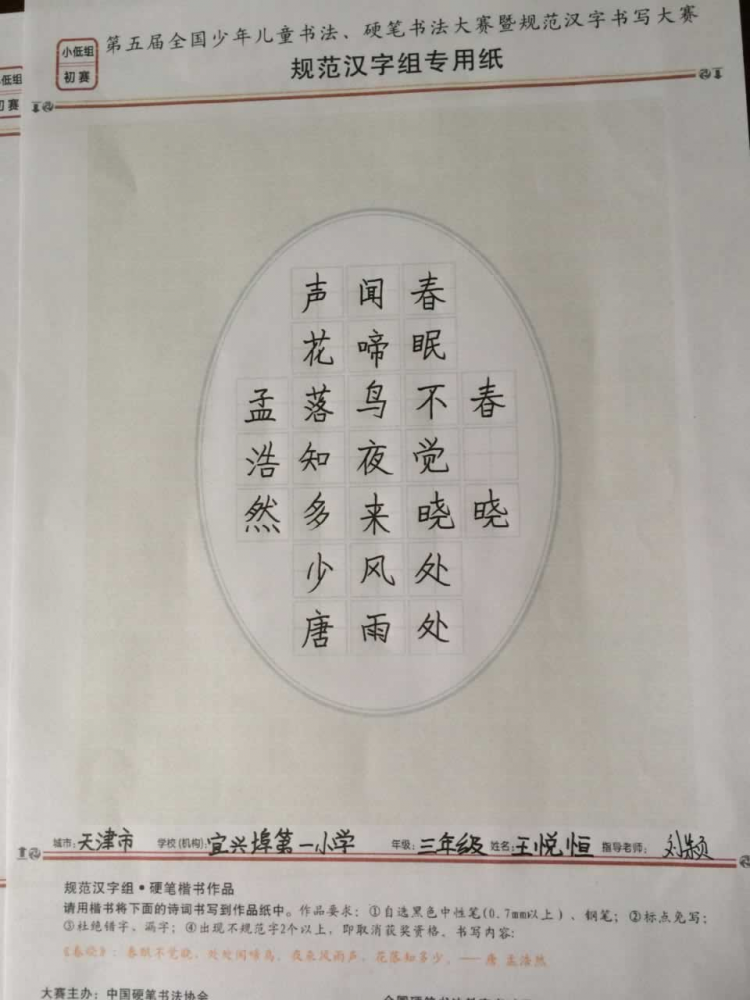 小低组
初赛
第五届全国少年儿童书法、硬笔书法大赛暨规范汉字书写大赛
规范汉字组专用纸
春晓
春眠不觉晓处处
闻啼鸟夜来风雨
声花落知多少唐
孟浩然
城市：天津市 学校(机构)：宜兴埠第一小学 年级：三年级 姓名：王悦恒 指导老师：刘颖
规范汉字组·硬笔楷书作品
请用楷书将下面的诗词书写到作品纸中。作品要求：①自选黑色中性笔(0.7mm以上)、钢笔；②标点免写；
③杜绝错字、漏字；④出现不规范字2个以上，即取消获奖资格。书写内容：
《春晓》：春眠不觉晓，处处闻啼鸟，夜来风雨声，花落知多少。—— 唐 孟浩然
大赛主办：中国硬笔书法协会